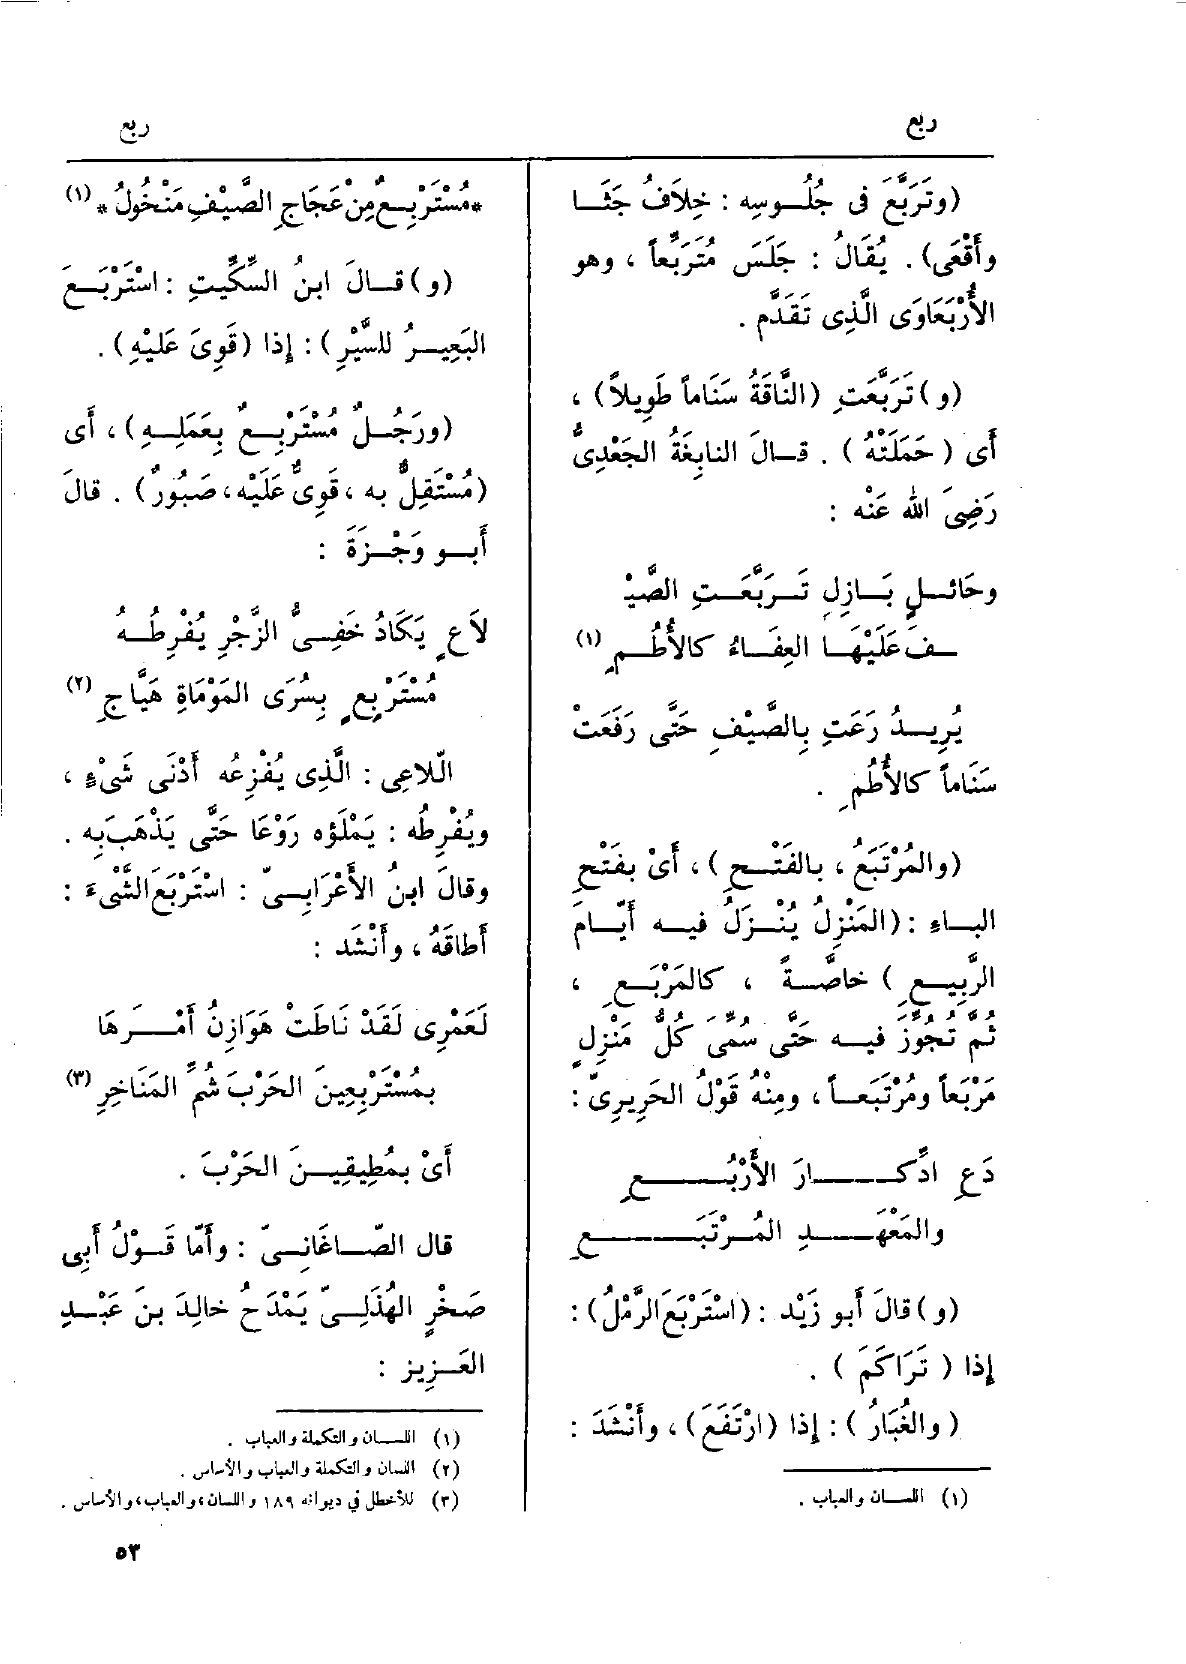 ربع
ربع
(وتَرَبَّعَ فى جُلُـوسِه : خِلَافُ جَثَـا
وأَقْعَى) . يُقَالُ : جَلَسَ مُتَرَبِّعاً ، وهو
الأُرْبَعَاوَى الَّذِى تَقَدَّم .
(و) تَرَبَّعَتِ (النَّاقَةُ سَنَاماً طَوِيلاً) ،
أَى (حَمَلَتْهُ) . قـالَ النابِغَةُ الجَعْدِىُّ
رَضِىَ الله عَنْه :
وحَائـلٍ بَـازِلٍ تَـرَبَّعَـتِ الصَّيْـ
ـفَ عَلَيْهَـا العِفَـاءُ كالأُطُـمِ (١)
يُرِيـدُ رَعَتِ بِالصَّيْفِ حَتَّى رَفَعَتْ
سَنَاماً كالأُطُمِ .
(والمُرْتَبَعُ ، بالفَتْـحِ) ، أَىْ بفَتْحِ
البـاءِ : (المَنْزِلُ يُنْـزَلُ فيـه أَيّـامَ
الرَّبِيـعِ) خاصَّـةً ، كالمَرْبَـعِ ،
ثُمَّ تُجُوِّزَ فيـه حَتَّى سُمِّىَ كُلُّ مَنْزِلٍ
مَرْبَعاً ومُرْتَبَعـاً ، ومِنْهُ قَوْلُ الحَرِيرِىّ :
دَعِ ادِّكَـــارَ الأَرْبُـــعِ
والمَعْهَـــدِ المُـرْتَبَـــعِ
(و) قالَ أَبو زَيْد : (اسْتَرْبَعَ الرَّمْلُ) :
إِذا (تَرَاكَمَ) .
(والغُبَارُ) : إِذا (ارْتَفَعَ) ، وأَنْشَدَ :
(١) اللسـان والعباب .
*مُسْتَرْبِـعٌ مِنْ عَجَاجِ الصَّيْفِ مَنْخُولُ* (١)
(و) قـالَ ابنُ السِّكِّيتِ : اسْتَرْبَـعَ
البَعِيـرُ للسَّيْرِ) : إِذا (قَوِىَ عَلَيْهِ) .
(ورَجُـلٌ مُسْتَرْبِـعٌ بِعَمَلِـهِ) ، أَى
(مُسْتَقِلٌّ به ، قَوِىٌّ عَلَيْه ، صَبُورٌ) . قالَ
أَبـو وَجْـزَةَ :
لَاعٍ يَكَادُ خَفِـىُّ الزَّجْرِ يُفْرِطُـهُ
مُسْتَرْبِعٍ بِسُرَى المَوْمَاةِ هَيَّاجِ (٢)
الَّلاعِى : الَّذِى يُفْزِعُه أَدْنَى شَىْءٍ ،
ويُفْرِطُه : يَمْلَؤه رَوْعَا حَتَّى يَذْهَبَ بِه .
وقالَ ابنُ الأَعْرَابِـىّ : اسْتَرْبَعَ الشَّىْءَ :
أَطاقَهُ ، وأَنْشَد :
لَعَمْرِى لَقَدْ نَاطَتْ هَوَازِنُ أَمْـرَهَا
بمُسْتَرْبِعِينَ الحَرْبَ شُمِّ المَنَاخِرِ (٣)
أَىْ بمُطِيقِيـنَ الحَرْبَ .
قال الصّـاغَانِـىّ : وأَمّا قَـوْلُ أَبِى
صَخْرٍ الهُذَلِـىّ يَمْدَحُ خالِدَ بنَ عَبْـدِ
العَـزِيز :
(١) اللسـان والتكملة والعباب .
(٢) اللسان والتكملة والعباب والأساس .
(٣) للأخطل في ديوانه ١٨٩ واللسان، والعباب، والأساس .
٥٣